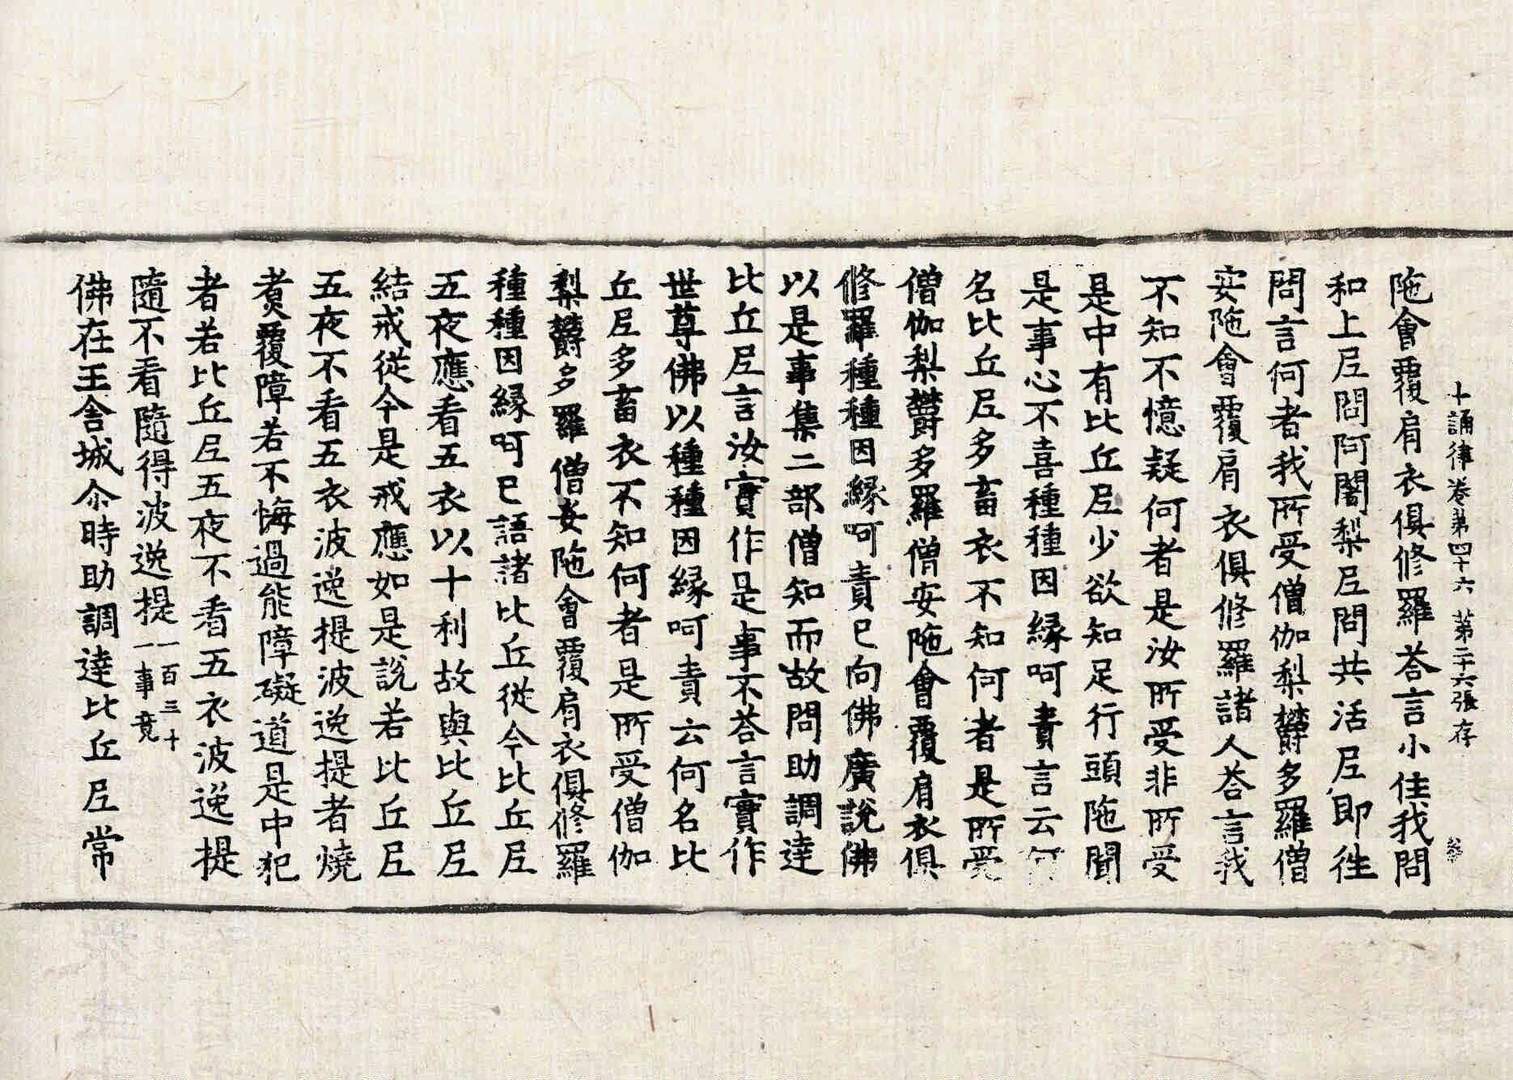 十誦律卷第四十六 第二十六張 存
陁會覆肩衣俱修羅荅言小住我問
和上尼問阿闍梨尼問共活尼即徃
問言何者我所受僧伽梨欝多羅僧
安陁會覆肩衣俱修羅諸人荅言我
不知不憶疑何者是汝所受非所受
是中有比丘尼少欲知足行頭陁聞
是事心不喜種種因縁呵責言云何
名比丘尼多畜衣不知何者是所受
僧伽梨欝多羅僧安陁會覆肩衣俱
修羅種種因縁呵責已向佛廣說佛
以是事集二部僧知而故問助調達
比丘尼言汝實作是事不荅言實作
世尊佛以種種因縁呵責云何名比
丘尼多畜衣不知何者是所受僧伽
梨欝多羅僧安陁會覆肩衣俱修羅
種種因縁呵已語諸比丘從今比丘尼
五夜應看五衣以十利故與比丘尼
結戒從今是戒應如是說若比丘尼
五夜不看五衣波逸提波逸提者燒
煑覆障若不悔過能障礙道是中犯
者若比丘尼五夜不看五衣波逸提
隨不看隨得波逸提一百三十一事竟
佛在王舍城尒時助調達比丘尼常